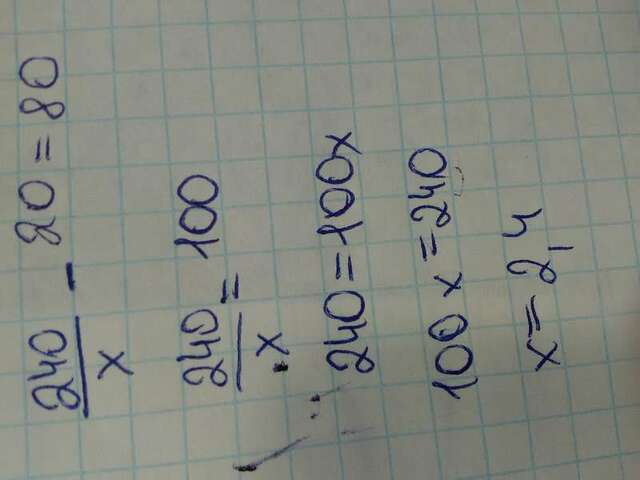 240/x - 20 = 80
240/x = 100
240 = 100x
100x = 240
x = 2,4